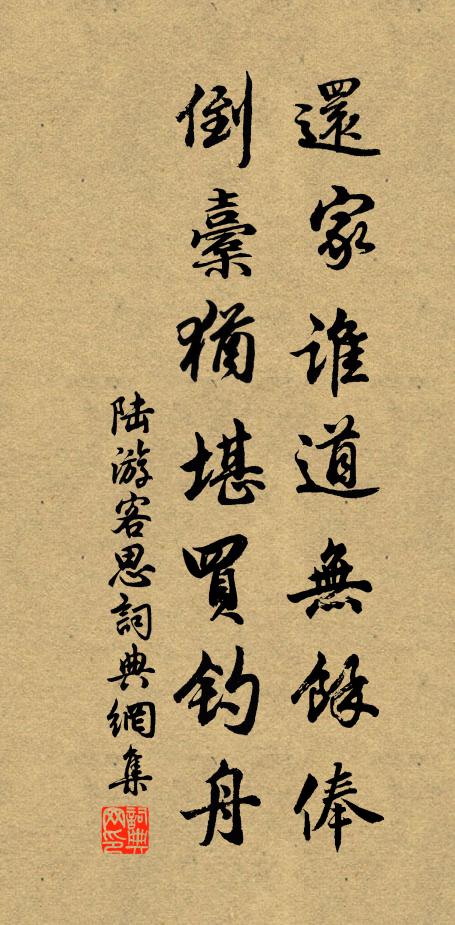 還家誰道無餘俸
倒橐猶堪買釣舟
陆游客思詞典網集
詞典网印